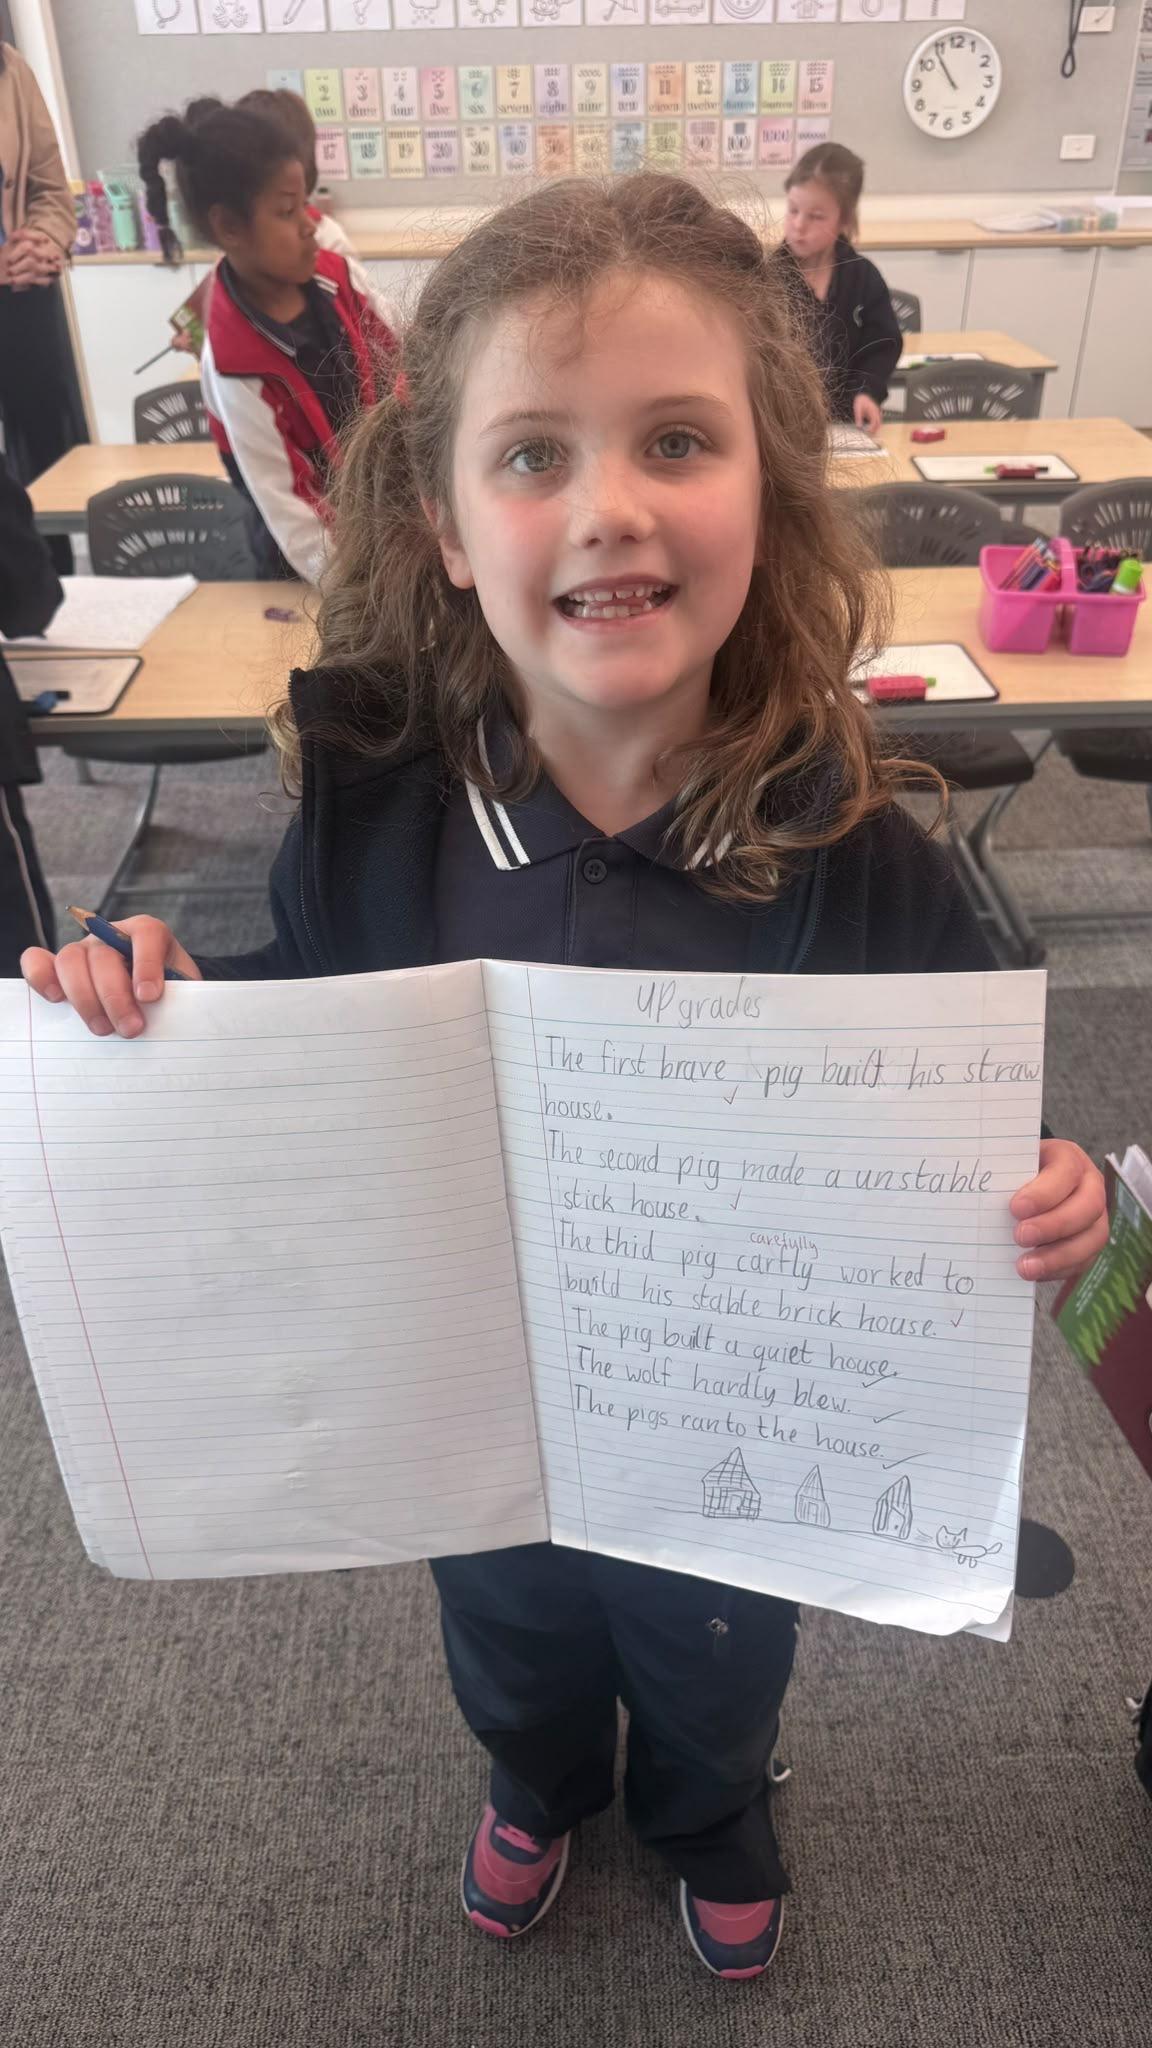 2 3 4 5 6 7 8 9 10 11 12 13 14 15
two three four five six seven eight nine ten eleven twelve thirteen fourteen fifteen
17 18 19 20 30 40 50 60 70 80 90 100 1000
11 12 1
10 2
9 3
8 4
7 6 5
UPgrades
The first brave pig built his straw
house.
The second pig made a unstable
stick house.
carefully
The thid pig cartly worked to
build his stable brick house.
The pig built a quiet house.
The wolf hardly blew.
The pigs ran to the house.